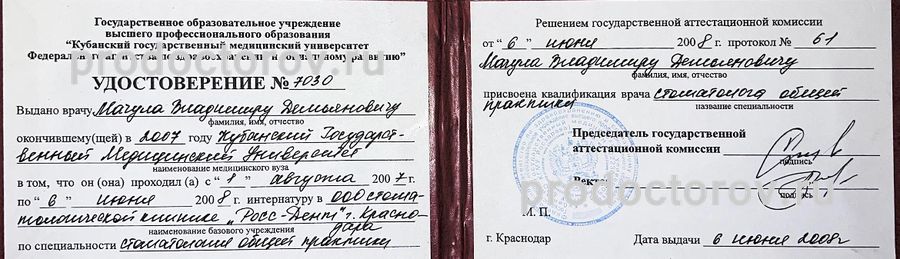 Государственное образовательное учреждение
высшего профессионального образования
“Кубанский государственный медицинский университет
Федерального агентства по здравоохранению и социальному развитию”
УДОСТОВЕРЕНИЕ № 7030
Выдано врачу Магула Владимиру Демьяновичу
фамилия, имя, отчество
окончившему(щей) в 2007 году Кубанский Государст-
венный Медицинский Университет
наименование медицинского вуза
в том, что он (она) проходил (а) с “ 1 ” августа 2007 г.
по “ 6 ” июня 2008 г. интернатуру в ООО стома-
тологической клинике „Росс-Дент" г. Красно-
дара
наименование базового учреждения
по специальности стоматология общей практики
Решением государственной аттестационной комиссии
от “ 6 ” июня 2008 г. протокол № 61
Магула Владимиру Демьяновичу
фамилия, имя, отчество
присвоена квалификация врача стоматолога общей
практики
название специальности
Председатель государственной
аттестационной комиссии
подпись
Ректор
подпись
М. П.
г. Краснодар Дата выдачи 6 июня 2008г
prodoctorov.ru
prodoctorov.ru